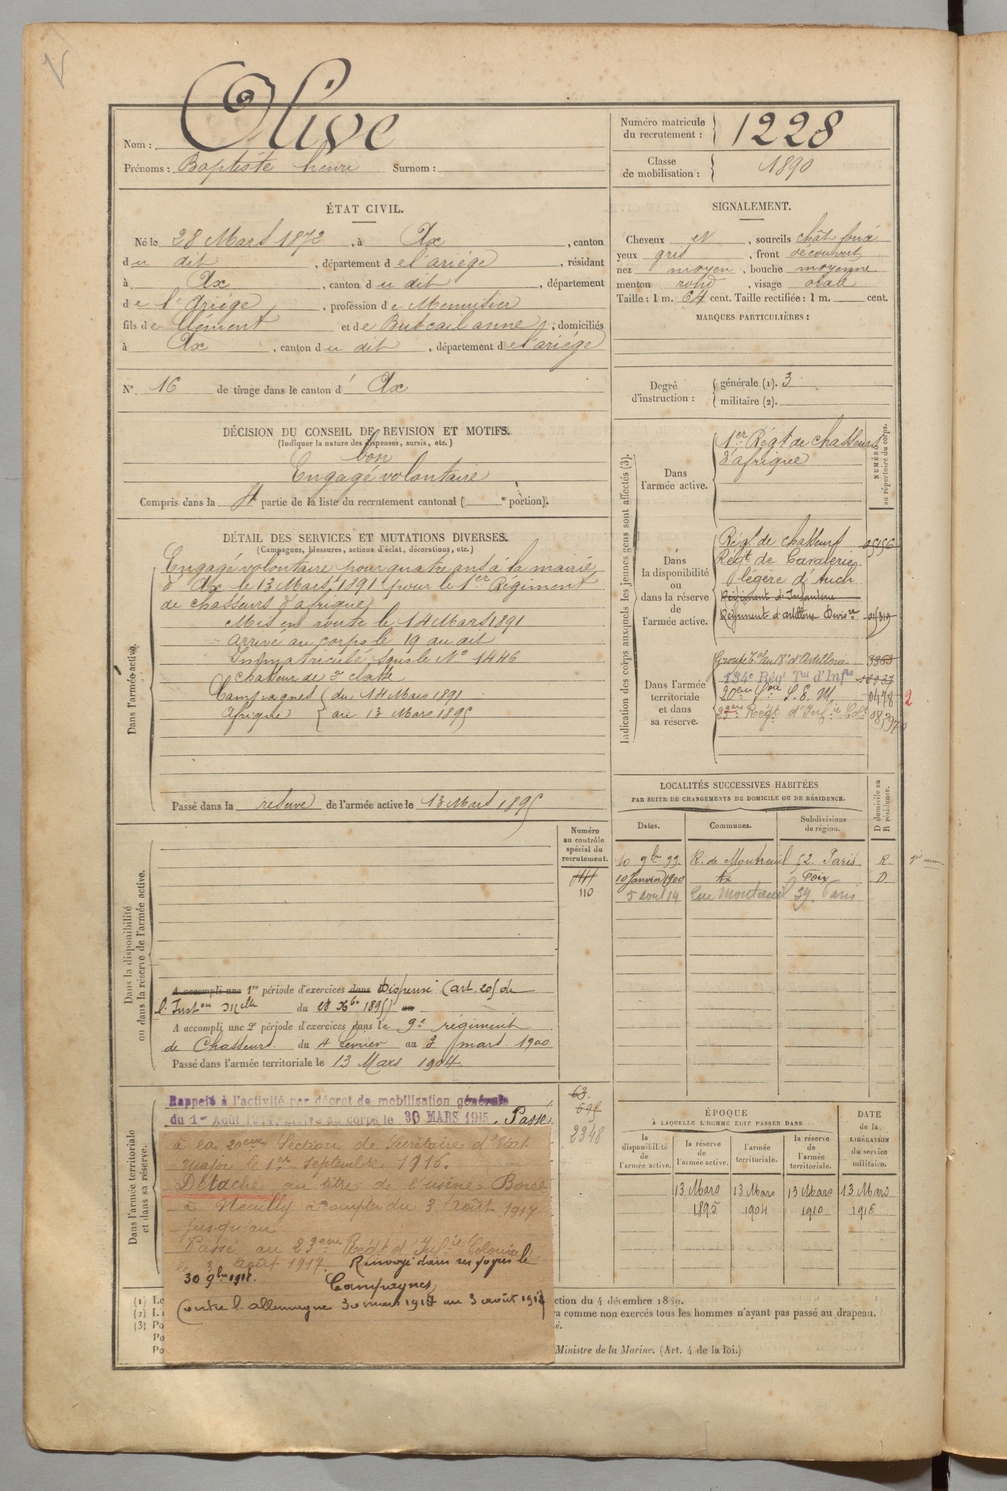 Nom : Olive
Prénoms : Baptiste henri Surnom :
Numéro matricule du recrutement : 1228
Classe de mobilisation : 1890
ÉTAT CIVIL.
Né le 28 Mars 1872, à Ax, canton
du dit, département de l'ariège, résidant
à Ax, canton du dit, département
de l'Ariège, profession de Menuisier
fils de Clément et de Buscail anne, domiciliés
à Ax, canton du dit, département de l'ariége
No. 16 de tirage dans le canton d' Ax
SIGNALEMENT.
Cheveux et, sourcils chât foncé
yeux gris, front découvert
nez moyen, bouche moyenne
menton rond, visage ovale
Taille : 1 m. 64 cent. Taille rectifiée : 1 m. cent.
MARQUES PARTICULIÈRES :
Degré d'instruction : générale (1). 3
militaire (2).
DÉCISION DU CONSEIL DE REVISION ET MOTIFS.
(Indiquer la nature des dispenses, sursis, etc.)
bon
Engagé volontaire
Compris dans la 4e partie de la liste du recrutement cantonal ( e portion).
DÉTAIL DES SERVICES ET MUTATIONS DIVERSES.
(Campagnes, blessures, actions d'éclat, décorations, etc.)
Dans l'armée active.
Engagé volontaire pour quatre ans à la mairie
d'Ax le 13 Mars 1891 pour le 1er Régiment
de chasseurs d'afrique
Mis en route le 14 Mars 1891
arrivé au corps le 19 au dit
Immatriculé sous le No 1446
chasseur de 2e classe
Campagnes { du 14 Mars 1891
Afrique { au 13 Mars 1895
Passé dans la réserve de l'armée active le 13 Mars 1895
Indication des corps auxquels les jeunes gens sont affectés (3).
NUMÉRO au répertoire du corps.
Dans l'armée active.
1er Régt de chasseurs
d'afrique
Dans la disponibilité ou dans la réserve de l'armée active.
Régt de chasseurs
Régt de Cavalerie
légère d'Auch
Régiment d'Infanterie
Régiment d'artillerie Divisre
Dans l'armée territoriale et dans sa réserve.
Groupe Terr du 18e d'Artillerie 3363
134e Régt Tal d'Infie
20eme Son S.E.M. 0478 2
23eme Régt d'Infie Cole
LOCALITÉS SUCCESSIVES HABITÉES
PAR SUITE DE CHANGEMENTS DE DOMICILE OU DE RÉSIDENCE.
Dates. Communes. Subdivisions de région. D domicile ou R résidence.
10 9bre 99 R. de Montreuil 52 Paris R.
10 Janvier 1900 Ax Foix D
5 avril 14 rue Montreuil 39 Paris
Numéro au contrôle spécial du recrutement.
110
Dans la disponibilité ou dans la réserve de l'armée active.
A accompli une 1re période d'exercices dans Dispensé (art. 20) de
l'Inston Mlle du 28 Xbre 1895)
A accompli une 2e période d'exercices dans le 9e régiment
de Chasseurs du 4 février au 3 mars 1900
Passé dans l'armée territoriale le 13 Mars 1904
Dans l'armée territoriale et dans sa réserve.
Rappelé à l'activité par décret de mobilisation générale
du 1er Août 1914, arrivé au corps le 30 MARS 1915. Passé
à la 20eme Section de Secrétaire d'Etat
Major le 1er Septembre 1916.
Détaché au titre de l'usine Borel
à Neuilly à compter du 3 Août 1917
jusqu'au
Passé au 23eme Régt d'Infie Coloniale
le 3 Août 1917. Renvoyé dans ses foyers le
30 9bre 1918. Campagnes
Contre l'allemagne 30 mars 1915 au 3 août 1917
63
2348
ÉPOQUE
À LAQUELLE L'HOMME DOIT PASSER DANS
la disponibilité de l'armée active.
la réserve de l'armée active.
l'armée territoriale.
la réserve de l'armée territoriale.
DATE de la LIBÉRATION du service militaire.
13 Mars 1895
13 Mars 1904
13 Mars 1910
13 Mars 1916
(1) Le
ction du 4 décembre 1889.
(2) L
ra comme non exercés tous les hommes n'ayant pas passé au drapeau.
(3) Po
Po
Po
Ministre de la Marine. (Art. 4 de la loi.)